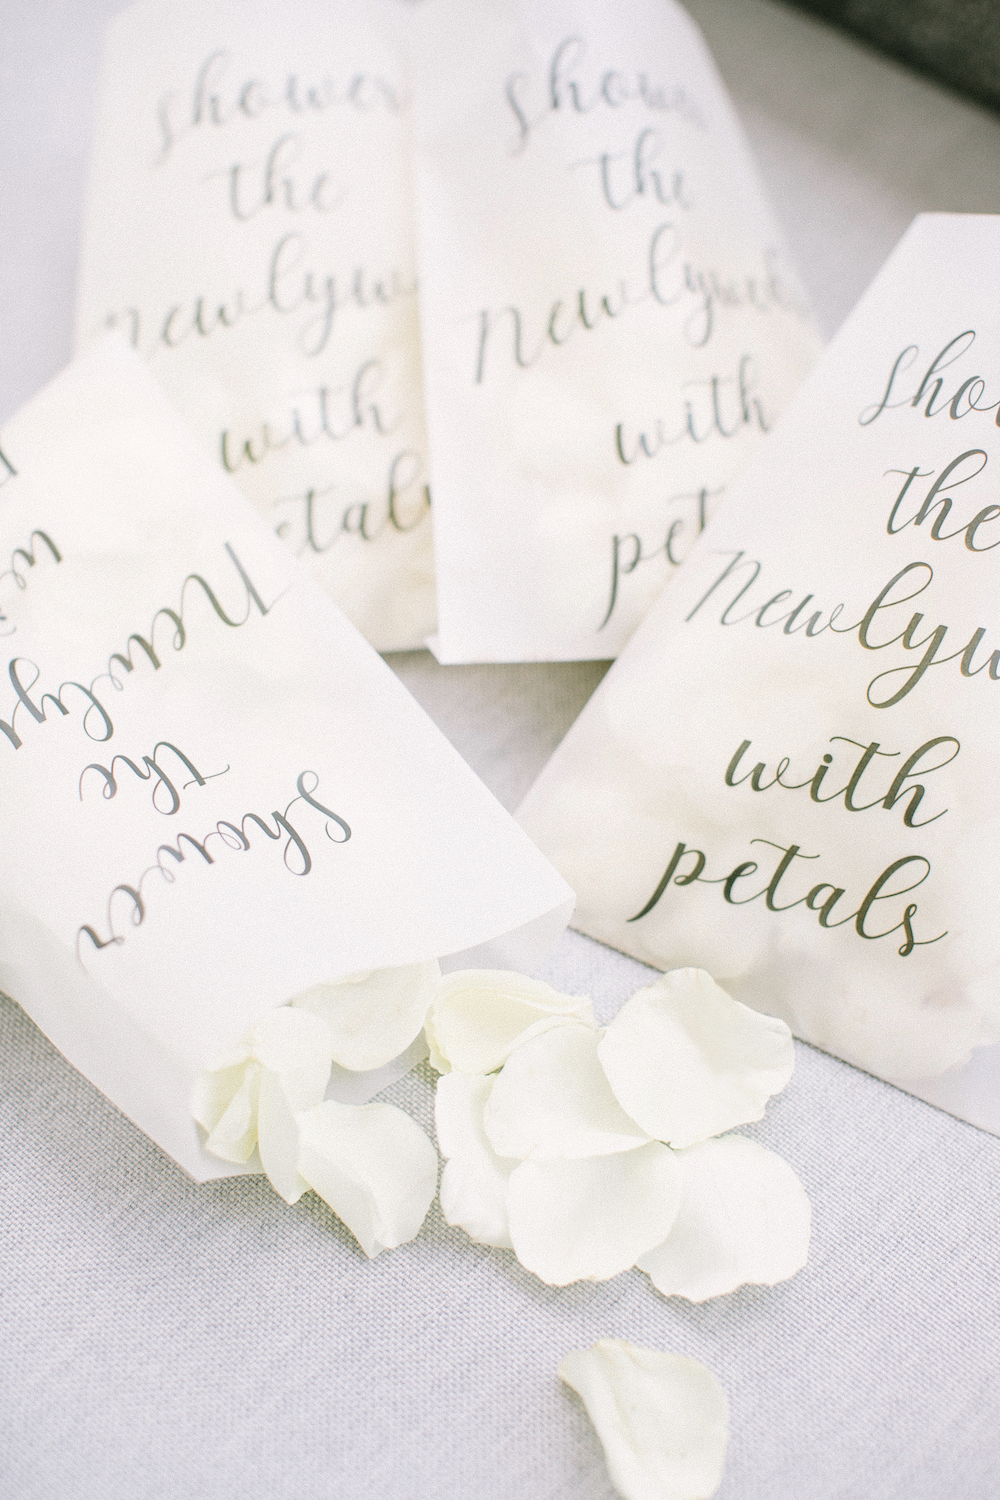 shower
the
newlyw
with
petals
show
the
newlywed
with
pet
sho
the
newlyw
with
petals
shower
the
newlyw
wi